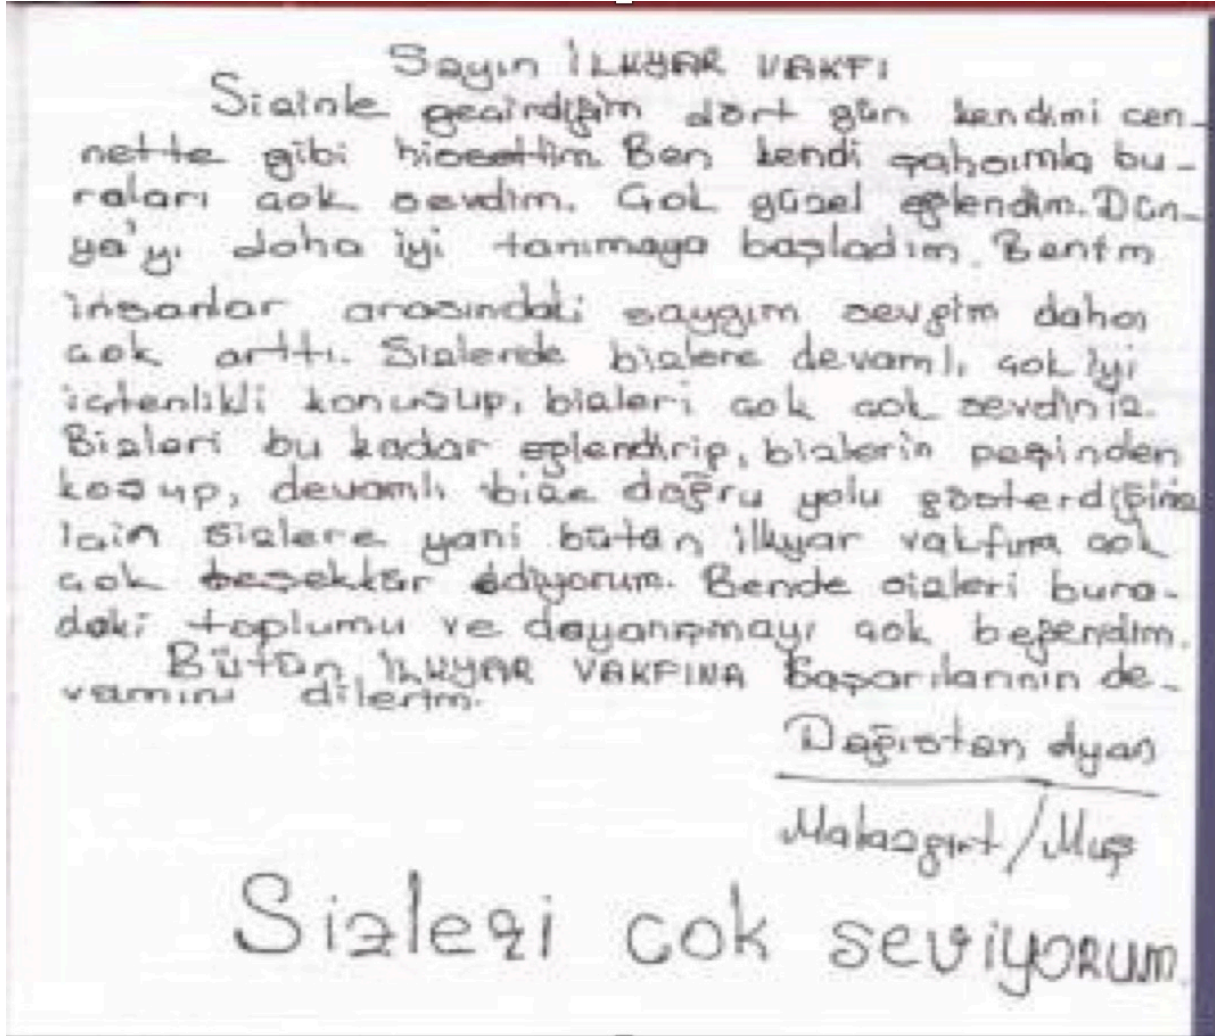 Sayın İLKYAR VAKFI
Sizinle geçirdiğim dört gün kendimi cen-
nette gibi hissettim. Ben kendi şahsımla bu-
raları çok sevdim. Çok güzel eğlendim. Dün-
ya'yı daha iyi tanımaya başladım. Benim
insanlar arasındaki saygım sevgim daha
çok arttı. Sizlerde bizlere devamlı çok iyi
içtenlikli konuşup, bizleri çok çok sevdiniz.
Bizleri bu kadar eğlendirip, bizlerin peşinden
koşup, devamlı bize doğru yolu gösterdiğiniz
için sizlere yani bütün ilkyar vakfına çok
çok teşekkür ediyorum. Bende sizleri bura-
daki toplumu ve dayanışmayı çok beğendim.
Bütün İLKYAR VAKFINA Başarılarının de-
vamını dilerim.
Dağıstan
Malazgirt/Muş
Sizleri çok seviyorum.